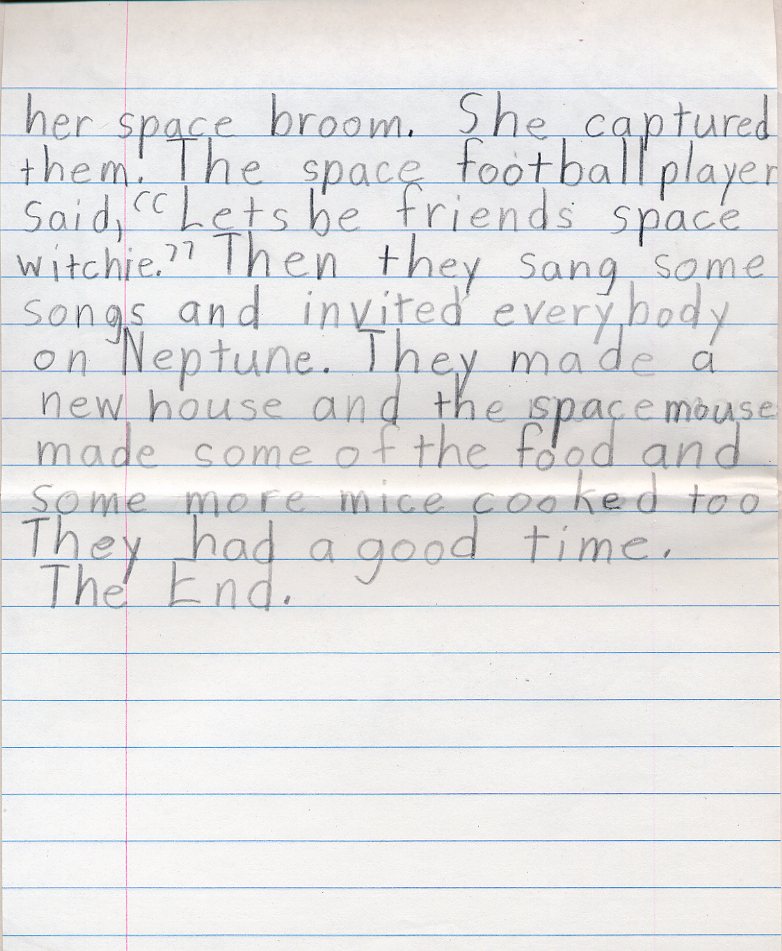 her space broom. She captured
them. The space football player
said, "Lets be friends space
witchie." Then they sang some
songs and invited everybody
on Neptune. They made a
new house and the space mouse
made some of the food and
some more mice cooked too
They had a good time.
The End.